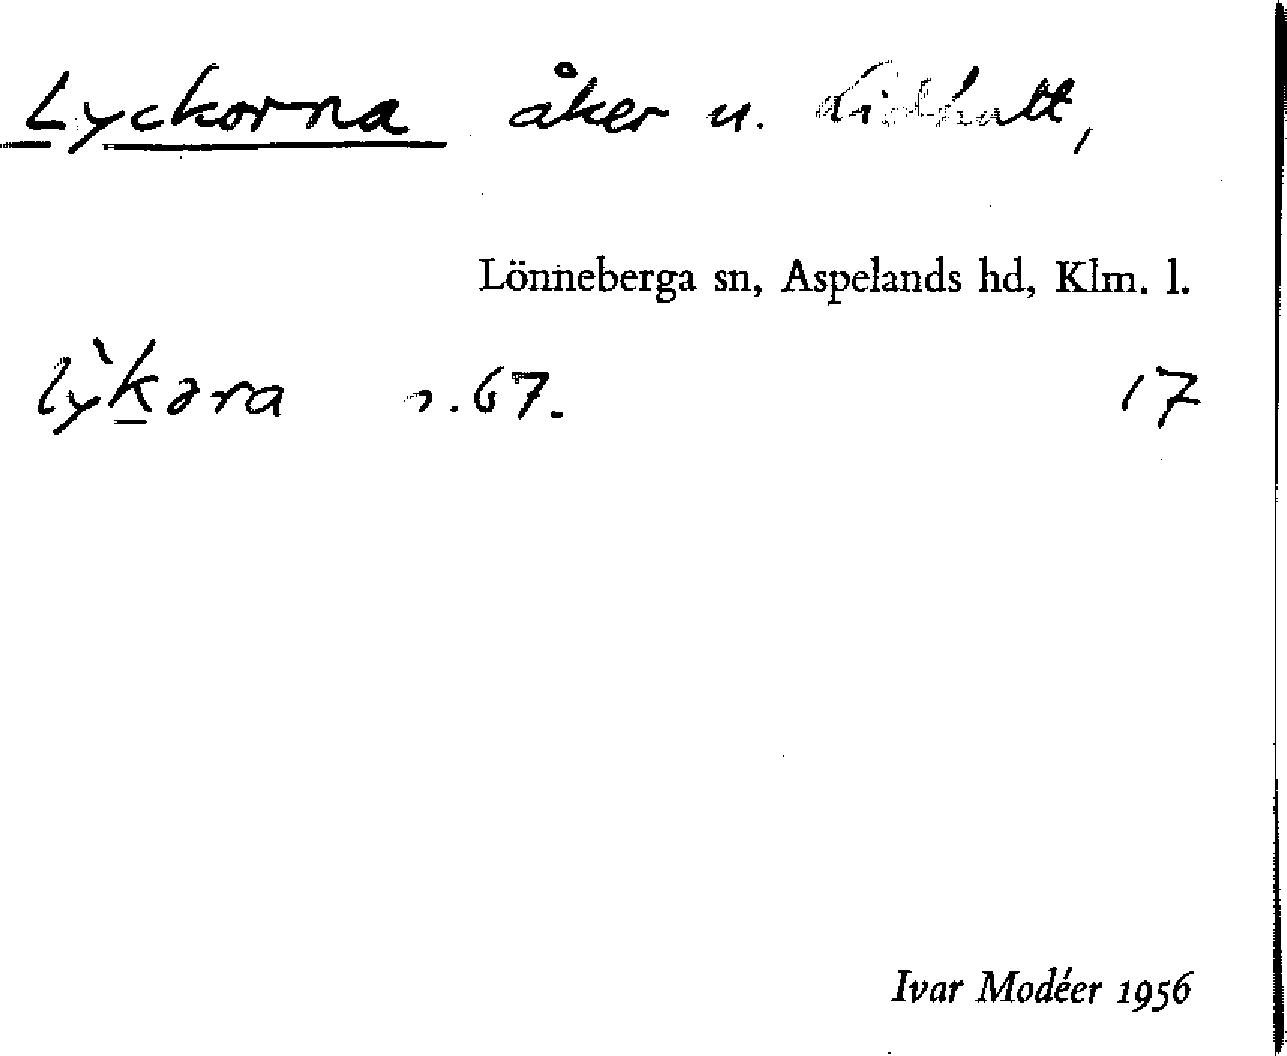 Lyckorna åker u.
Lönneberga sn, Aspelands hd, Klm. l.
lỳkəra n.67. 17
Ivar Modéer 1956